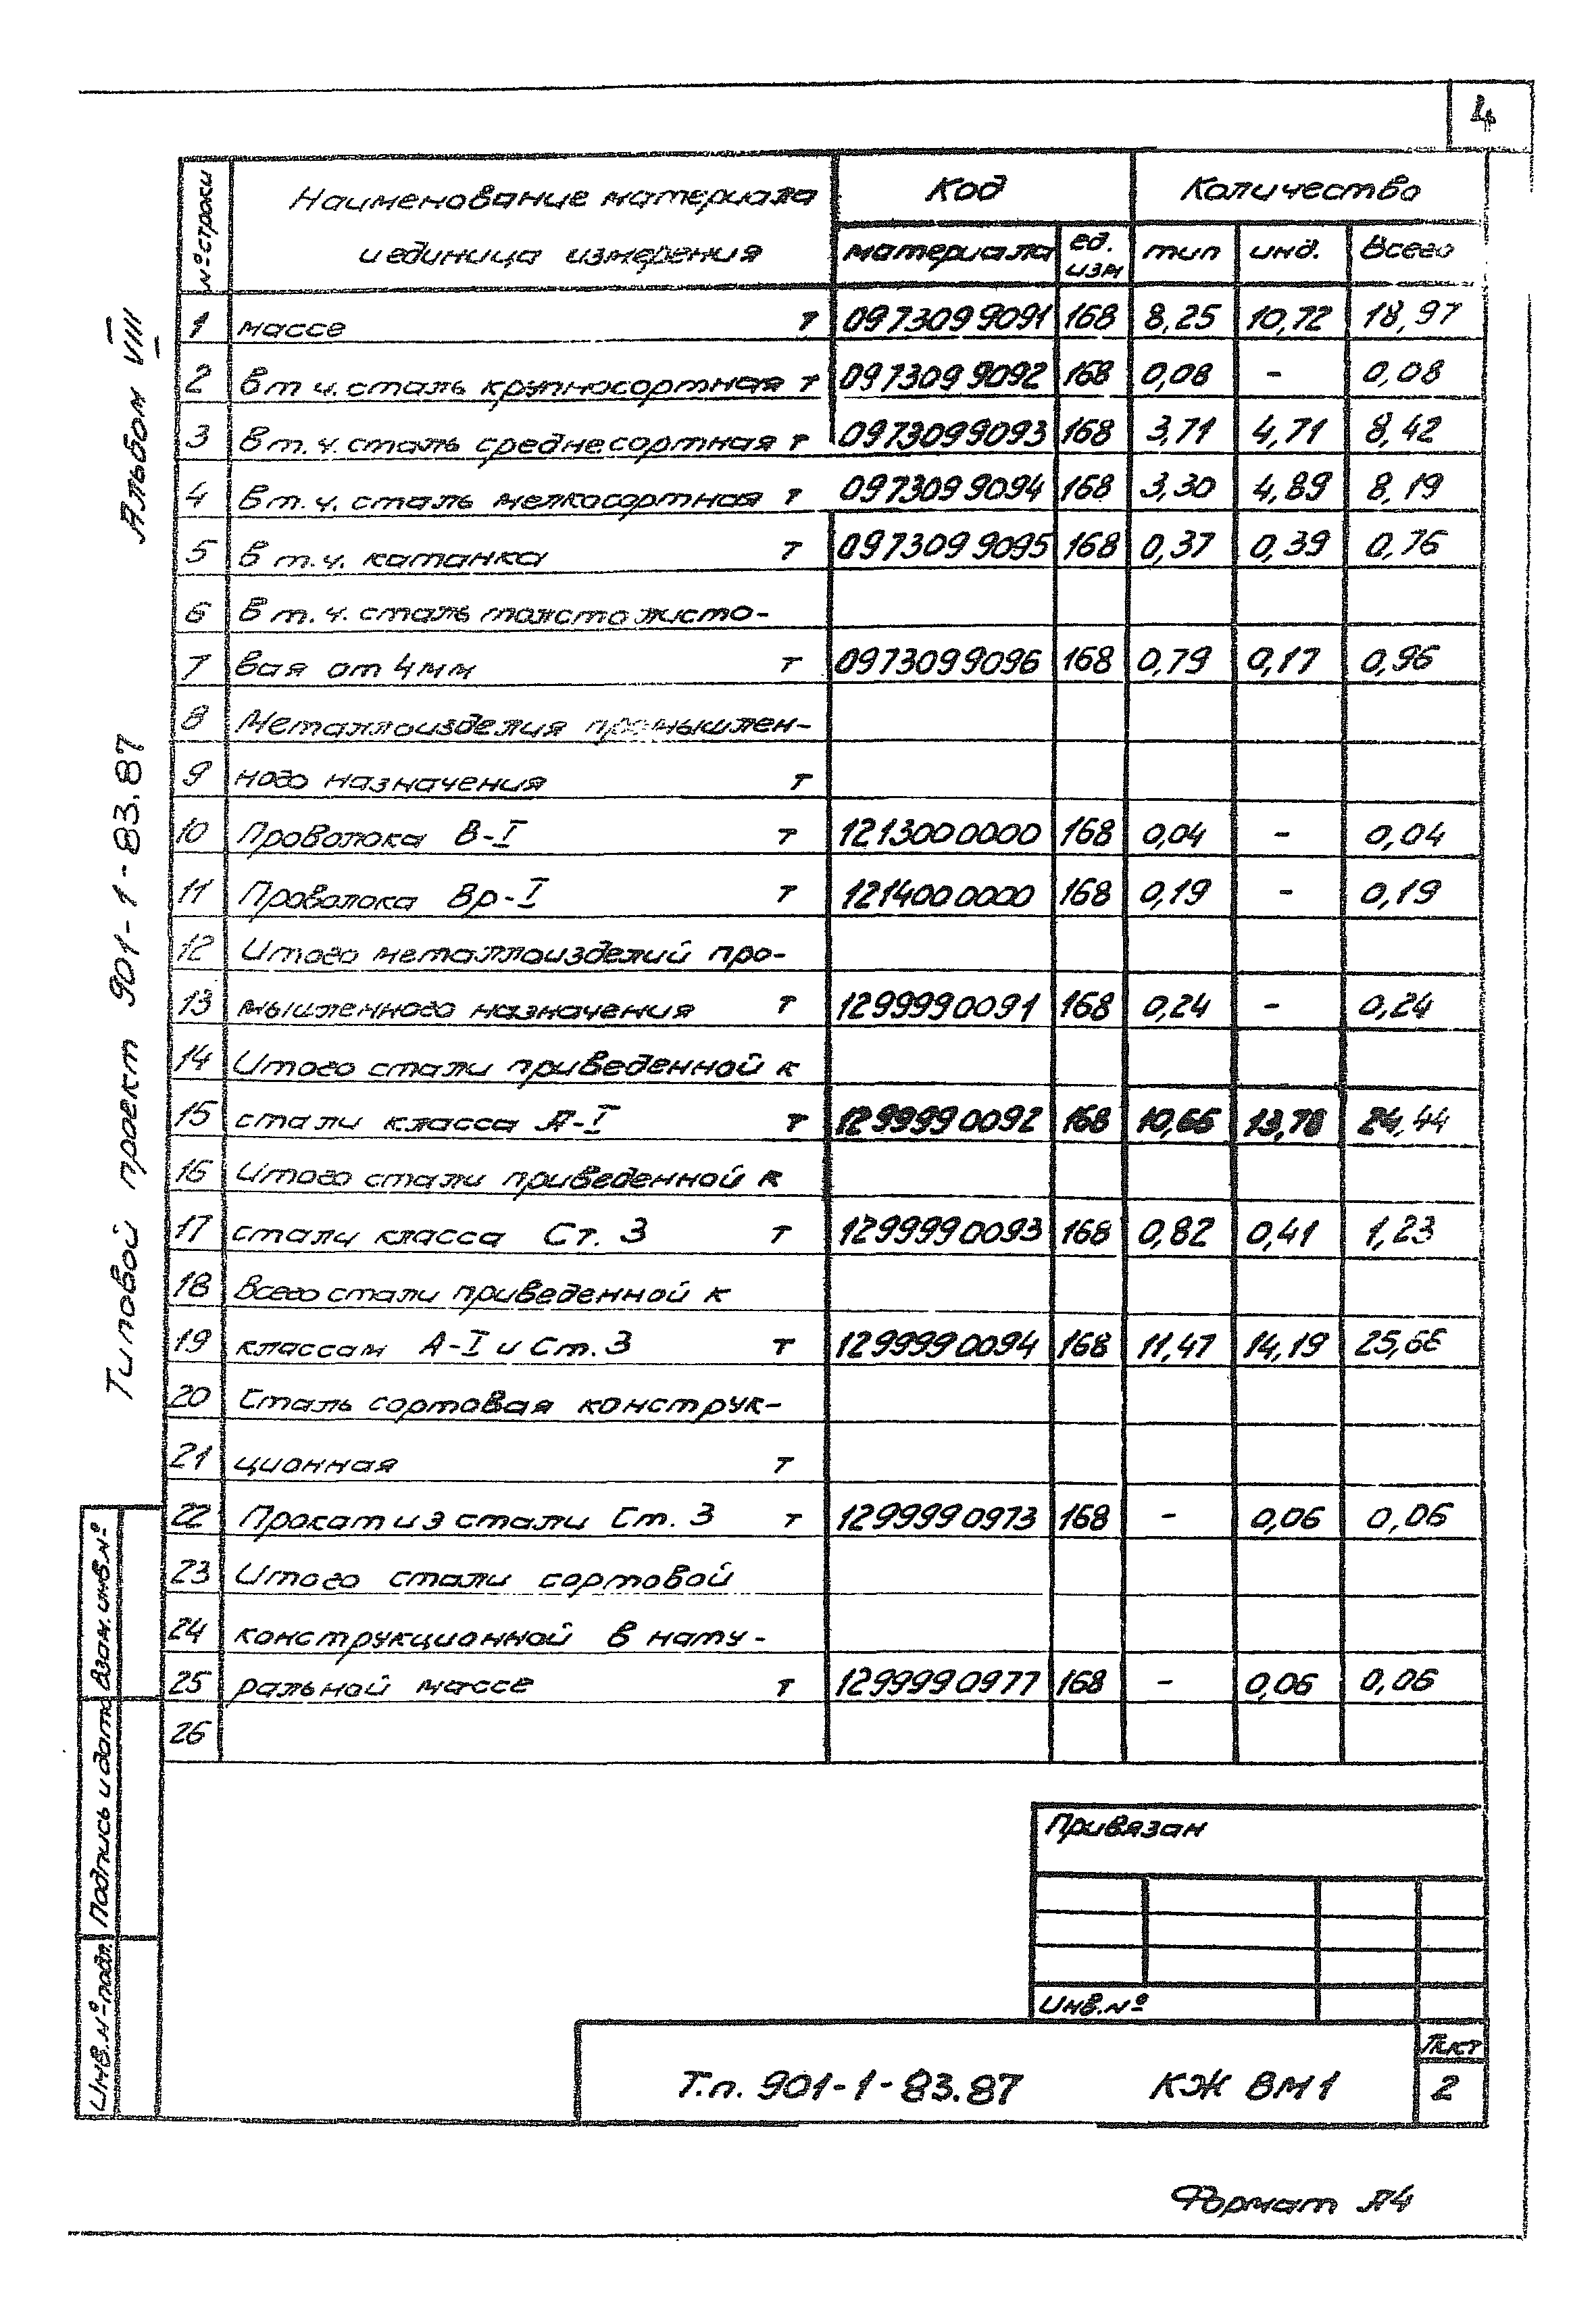 4
№ строки
Наименование материала
и единица измерения
Код
Количество
материала
ед. изм
тип
инд.
Всего
1 массе т 0973099091 168 8,25 10,72 18,97
2 в т ч. сталь крупносортная т 0973099092 168 0,08 - 0,08
3 в т. ч. сталь среднесортная т 0973099093 168 3,71 4,71 8,42
4 в т. ч. сталь мелкосортная т 0973099094 168 3,30 4,89 8,19
5 в т. ч. катанка т 0973099095 168 0,37 0,39 0,76
6 в т. ч. сталь толстолисто-
7 вая от 4 мм т 0973099096 168 0,79 0,17 0,96
8 Металлоизделия промышлен-
9 ного назначения т
10 Проволока В-I т 1213000000 168 0,04 - 0,04
11 Проволока Вр-I т 1214000000 168 0,19 - 0,19
12 Итого металлоизделий про-
13 мышленного назначения т 1299990091 168 0,24 - 0,24
14 Итого стали приведенной к
15 стали класса А-I т 1299990092 168 10,66 13,78 24,44
16 Итого стали приведенной к
17 стали класса Ст. 3 т 1299990093 168 0,82 0,41 1,23
18 Всего стали приведенной к
19 классам А-I и Ст. 3 т 1299990094 168 11,47 14,19 25,66
20 Сталь сортовая конструк-
21 ционная т
22 Прокат из стали Ст. 3 т 1299990973 168 - 0,06 0,06
23 Итого стали сортовой
24 конструкционной в нату-
25 ральной массе т 1299990977 168 - 0,06 0,06
26
Альбом VIII
Типовой проект 901-1-83.87
Взам. инв. №
Подпись и дата
Инв. № подл.
Привязан
Инв. №
Т.п. 901-1-83.87 КЖ ВМ1
Лист
2
Формат А4